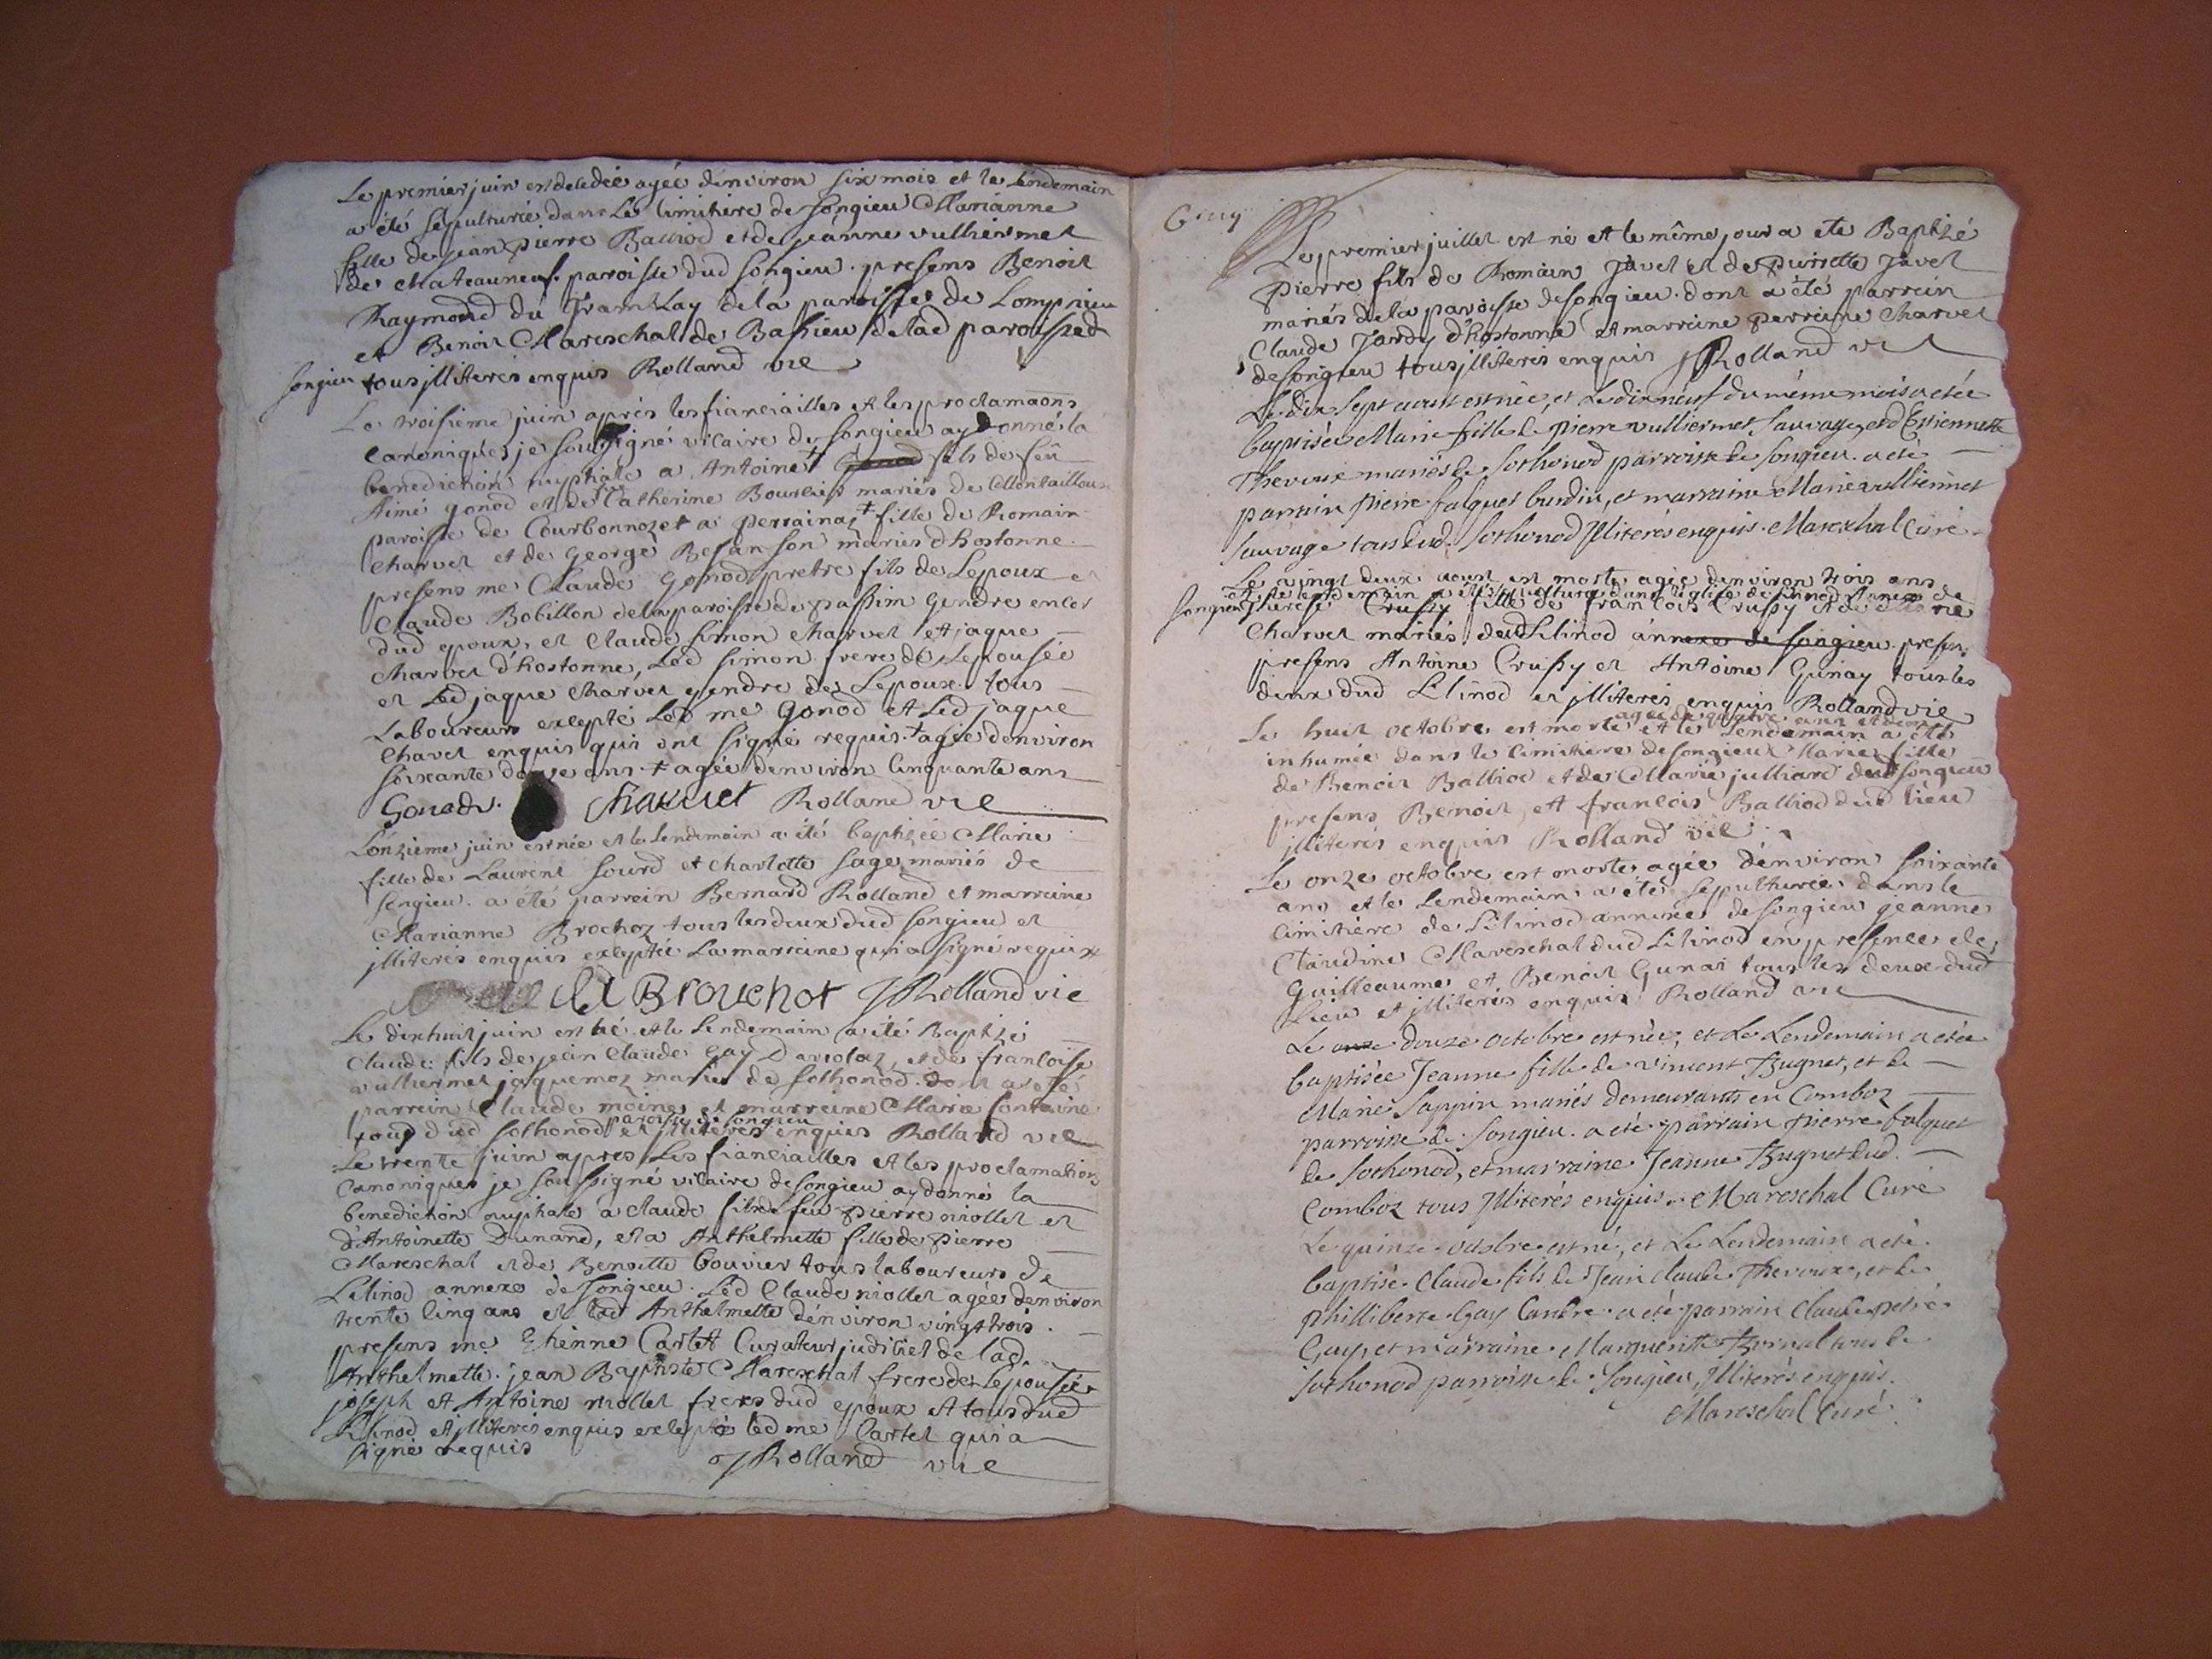 Le premier juin est decedée agée denviron six mois et le lendemain
a été sepulturée dans Le Cimitiere de Songieu Marianne
fille de jean pierre Balliod et de jeanne vulliermet
de Chateauneuf paroisse dud Songieu. presens Benoit
Raymond du Tramblay de la paroisse de Lompnieu
et Benoit Mareschal de Bassieu de lad paroisse de
Songieu tous jlliterés enquis Rolland vic
Le troisieme juin aprés les fianciailles et les proclamaõns
canoniques je soussigné vicaire de Songieu ay donné la
benediction nuptiale a Antoine + fils de feu
Aimé gonod et de Catherine Bourbier mariés de
paroisse de Courbonnoz et a perraina + fille de Romain
Charvet et de George Besanson mariés dhostonne.
presens me Claude Gonod pretre fils de Lepoux et
Claude Bobillon de la paroisse de passim Gendre encor
dud epoux, et Claude Simon Charvet et jaque
Charvet d'hostonne, Led Simon frere de Lepousée
et Led jaque Charvet gendre de Lepoux. tous
Laboureurs excepté Led me Gonod et Led jaque
Chavet enquis qui ont signé requis. + agée denviron
soixante douze ans + agée denviron Cinquante ans
Gonod Charvet Rolland vic
L'onzieme juin est née et le lendemain a été baptizée Marie
fille de Laurent Sourd et Charlotte Sage mariés de
Songieu. a été parrein Bernard Rolland et marreine
Marianne Brochoz tous les deux dud Songieu et
jlliterés enquis exceptée La marreine qui a signé requise
Brouchot J Rolland vic
Le dix huit juin est né et le Lendemain a été Baptizé
Claude fils de jean Claude Gay Davolaz, et de francoise
vulliermet jaquemoz mariés de Sothonod. dont a été
parrein Claude moine et marreine Marie fontaine
paroisse de songieu
tous dud Sothonod et jlliterés enquis Rolland vic
Le trente juin apres Les fianciailles et les proclamations
Canoniques je soussigné vicaire de Songieu ay donné la
benediction nuptiale a Claude fils de feu pierre niollet et
d'Antoinette Dunand, et a Anthelmette fille de pierre
Mareschal et de Benoitte bouvier tous laboureurs de
Lilinod annexe de Songieu. Led Claude niollet agée denviron
trente Cinq ans et lad Anthelmette denviron vingt trois.
presens me Etienne Cartet Curateur juditiel de lad
Anthelmette. jean Baptiste Mareschal frere de Lepousée
joseph et Antoine niollet freres dud epoux et tous dud
Lilinod et jlliterés enquis excepté led me Cartet qui a
signé requis J Rolland vic
Le premier juillet est né et le même jour a été Baptizé
pierre fils de Romain Javet et de pierrette Javet
mariés de la paroisse de Songieu. dont a été parrein
Claude Jardy d'hostonne et marreine perrine Charvet
de Songieu tous jlliterés enquis J Rolland vic
Le dix sept aoust est née, et Le dix neuf du même mois a etée
baptisée Marie fille de Pierre vulliermet Sauvage, et d'Estiennette
Thevoux mariés de Sothonod parroisse de Songieu. a eté
parrain Pierre falquet burdin, et marraine Marie vulliermet
Sauvage tous dud. Sothonod Illiterés enquis. Mareschal Curé.
Le vingt deux aoust est morte agée denviron trois ans
et le lendemain a été sepulturée dans l'eglise de Lilinod annexe de
Songieu Crussy fille de francois Crussy et de
Charvet mariés dud Lilinod annexe de Songieu presens
presens Antoine Crussy et Antoine Gunay tous les
deux dud Lilinod et jlliterés enquis Rolland vic
agée de quatre ans et demi
Le huit octobre est morte et le Lendemain a été
inhumée dans le Cimitiere de Songieu Marie fille
de Benoit Balliod et de Marie julliard dud Songieu
presens Benoit, et francois Balliod dud lieu
jlliterés enquis Rolland vic
Le onze octobre est morte agée denviron soixante
ans et le Lendemain a été sepulturée dans le
Cimitiere de Lilinod annexe de Songieu jeanne
Claudine Mareschal dud Lilinod en presence de
Guilleaume et Benoit Gunai tous les deux dud
Lieu et jlliterés enquis Rolland vic
Le onze douze octobre est née, et Le Lendemain a etée
baptisée Jeanne fille de vincent Bugnet, et de
Marie Sappin mariés demeurants en Comboz
parroisse de Songieu. a eté parrain Pierre falquet
de Sothonod, et marraine Jeanne Bugnet dud.
Comboz tous Illiterés enquis. Mareschal Curé
Le quinze octobre est né, et Le Lendemain a eté
baptisé Claude fils de Jean Claude Thevoux, et de
Philliberte Gay Candre. a eté parrain Claude
Gay, et marraine Marguerite tous de
Sothonod parroisse de Songieu, Illiterés enquis.
Mareschal Curé